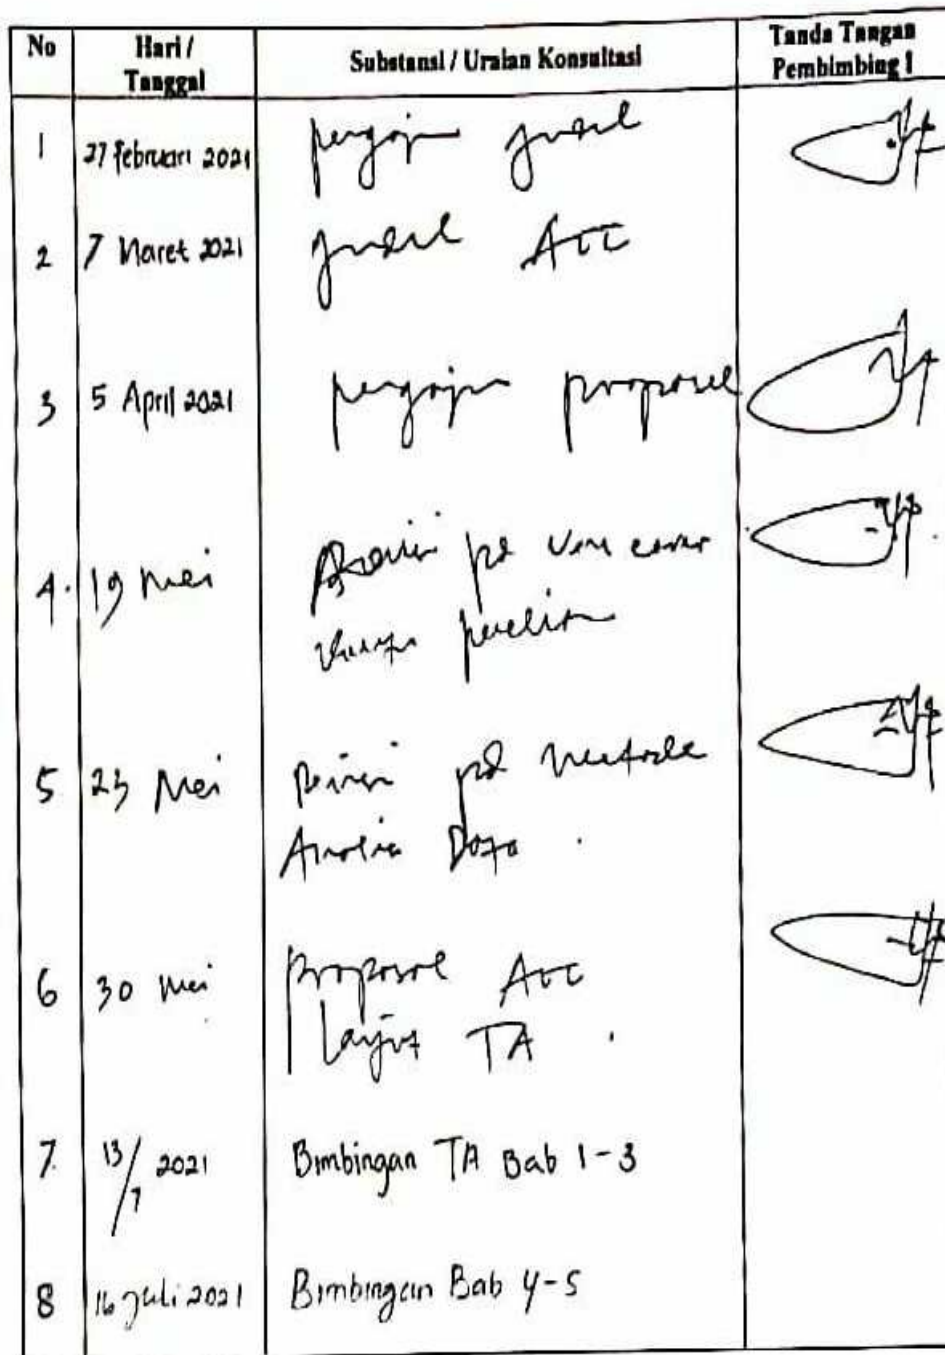 No Hari / Tanggal Substansi / Uraian Konsultasi Tanda Tangan Pembimbing I
1 27 Februari 2021 pengajuan judul
2 7 Maret 2021 judul Acc
3 5 April 2021 pengajuan proposal
4. 19 Mei pd
5 23 Mei Revisi pd Metode
Analisa Data .
6 30 Mei Proposal Acc
Lanjut TA .
7. 13/7 2021 Bimbingan TA Bab 1-3
8 16 Juli 2021 Bimbingan Bab 4-5